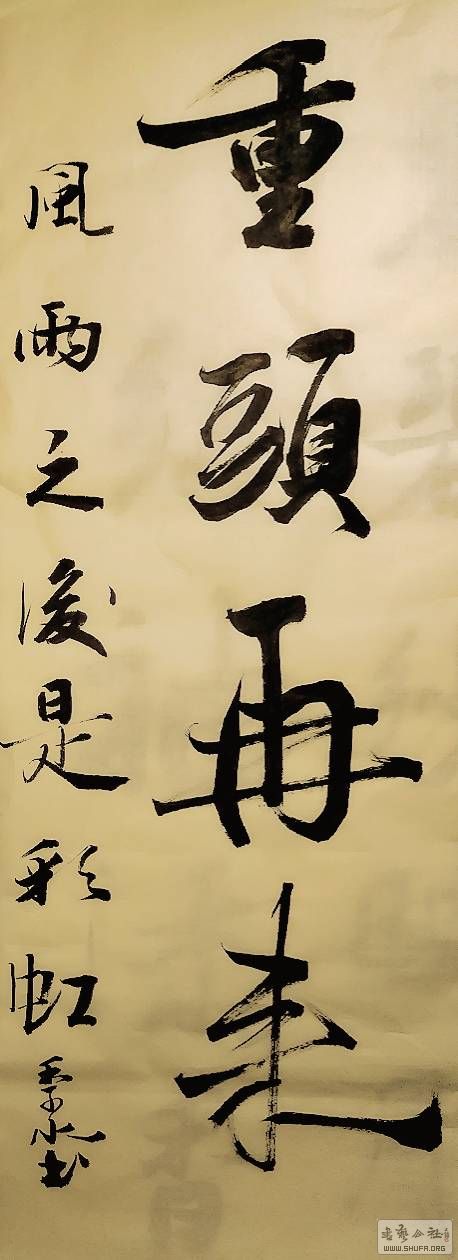 重頭再来
風雨之後是彩虹
書艺公社
WWW.SHUFA.ORG